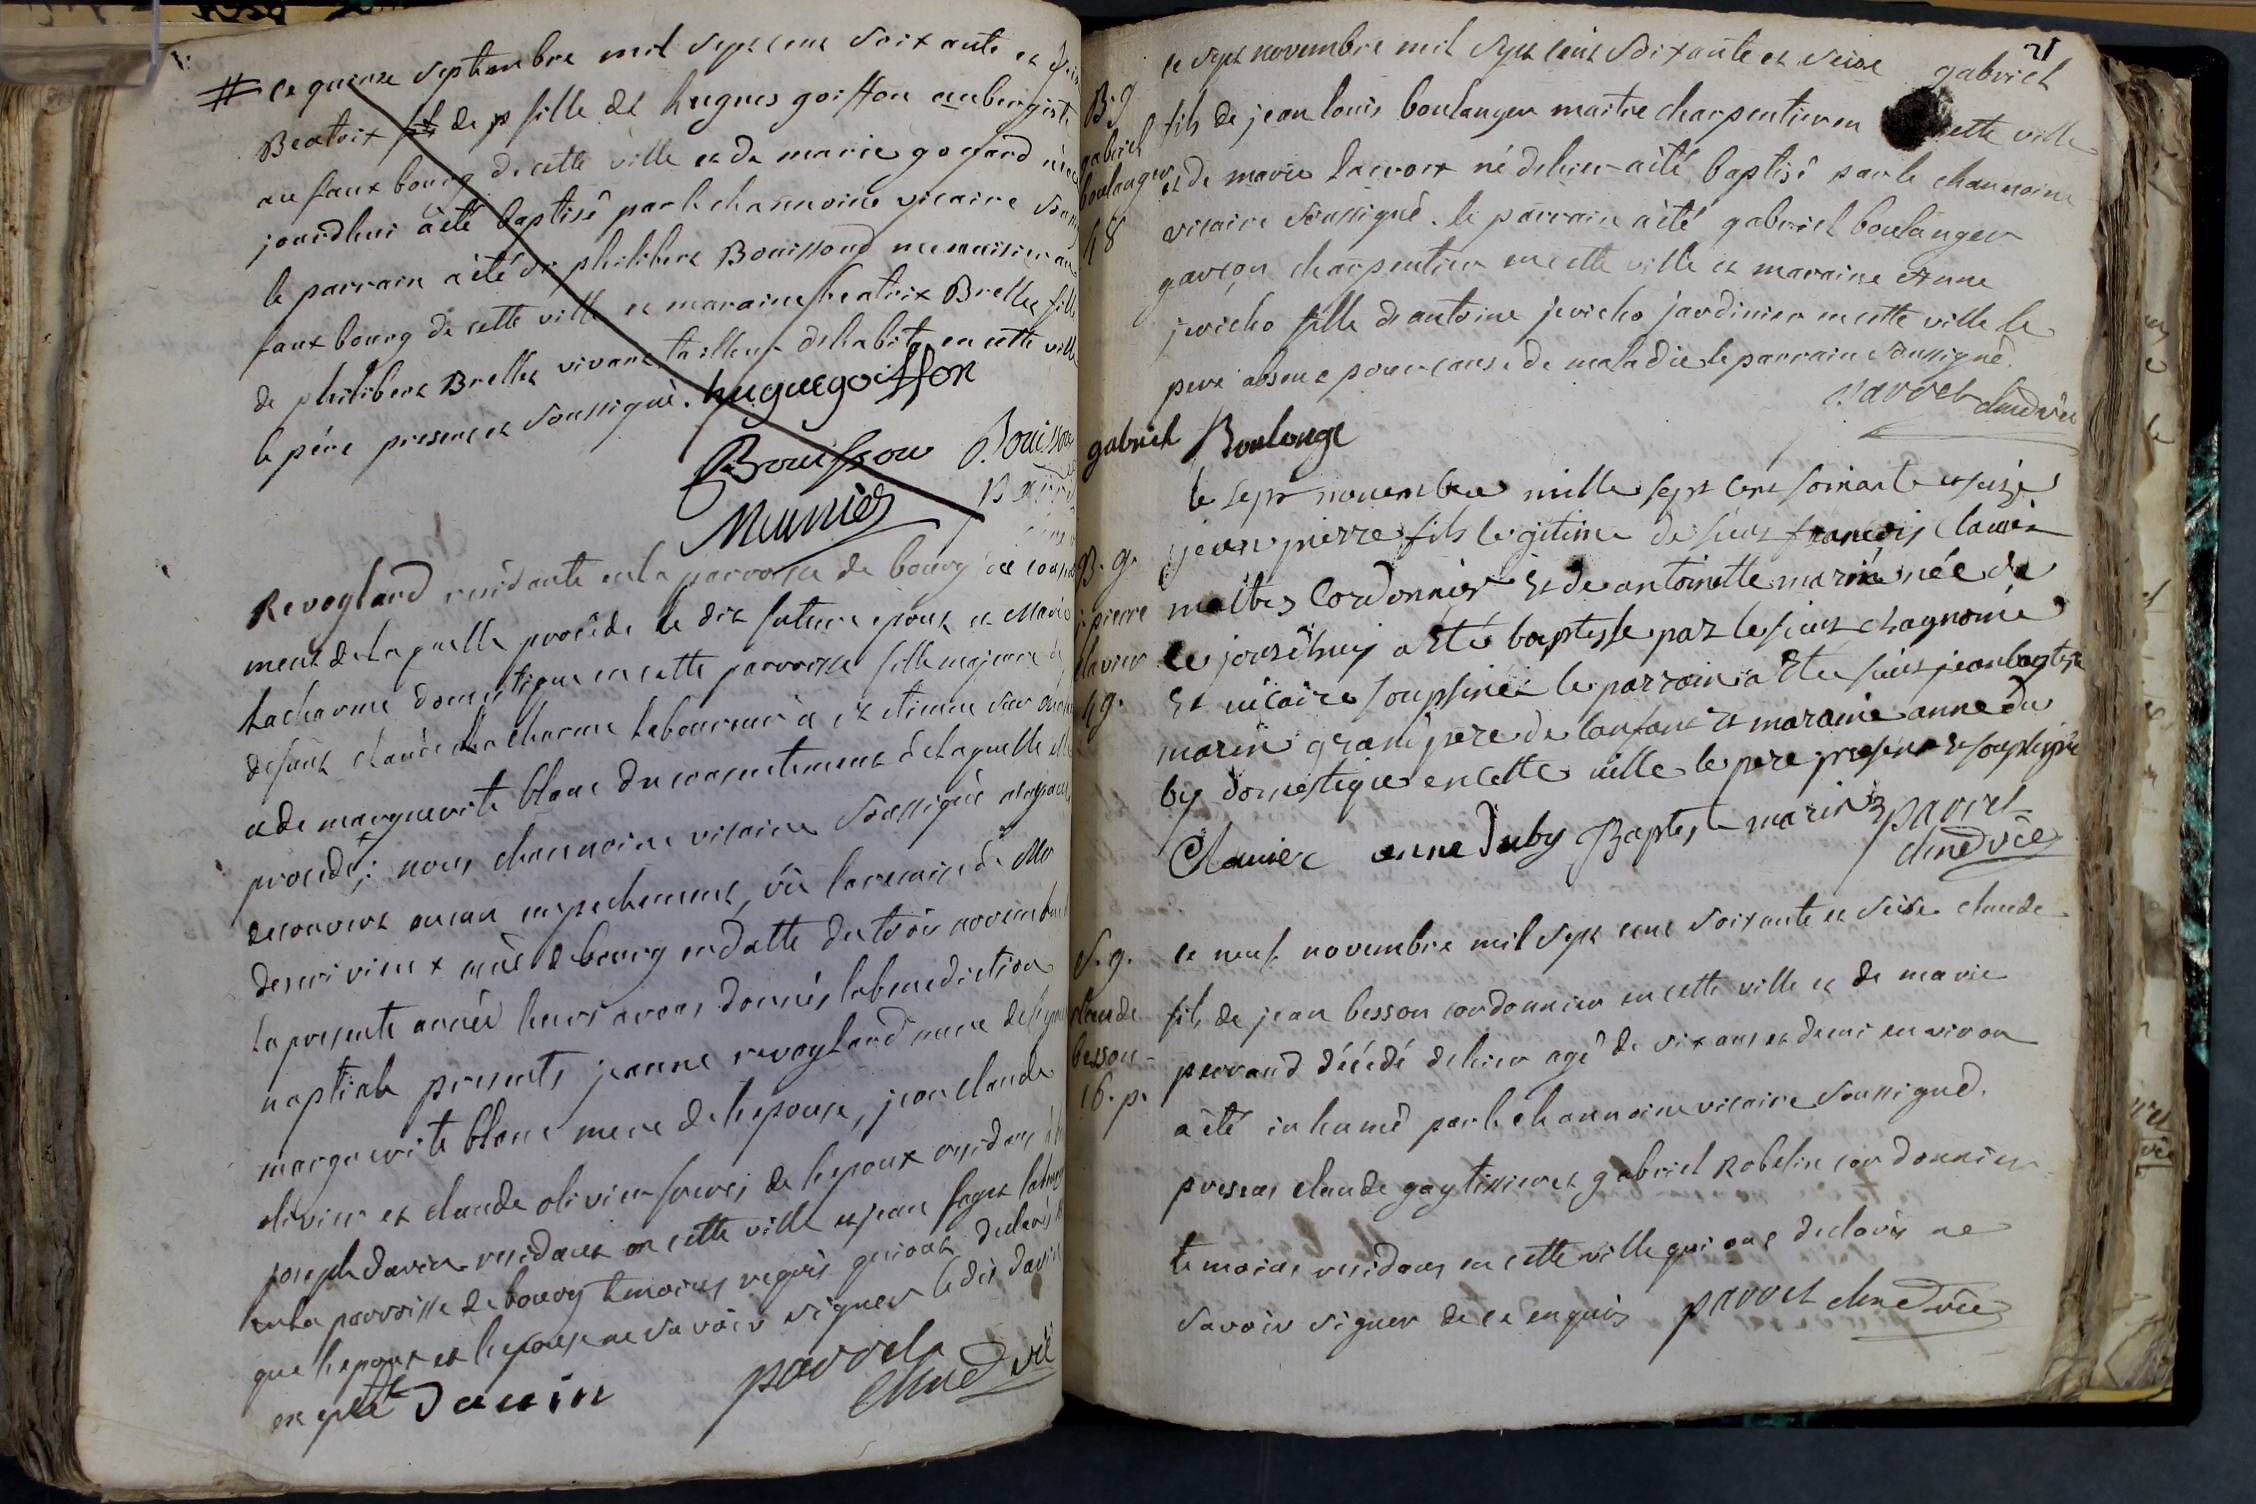 ce quinze septembre mil sept cent soixante et
Beatrix fils de p fille de hugues goiffon aubergiste
au faux bourg de cette ville et de marie goyard née
jourdhui à été baptisé par le channoine vicaire
le parrain à été Sr philibert Bouissoud menuisier au
faux bourg de cette ville et maraine beatrix Brellet fille
de philibert Brellet vivant tailleur d'habits en cette ville
le père present et soussigné. hugue goiffon
Bouissou Bouissou
Meunier
Revoyland residante en la parroisse de bourg
ment de laquelle procède le dit future epoux et Marie
Lacharme domestique en cette parroisse fille majeure
defunt claude Lacharme laboureur à st etienne sur
et de marguerite blanc du consentement de laquelle elle
procède; nous channoine vicaire soussigné
decouvert aucun empechement, vû la remise de Mr
desrivieux curé de bourg en datte du trois novembre
la presente année leurs avons donnés la benediction
nuptiale presents jeanne revoyland mere de
marguerite blanc mere de lepouse, jean claude
olivier et claude olivier freres de lepoux residans
joseph davin residant en cette ville et jean
en la parroisse de bourg temoins requis qui ont declarés
que lepoux et lepouse ne savoir signer le dit davin
Davin parret chne vic
21
ce sept novembre mil sept cent soixante et seise gabriel
B. g
gabriel
boulanger
48
fils de jean louis boulanger maitre charpentier en cette ville
et de marie lacroix né dehier à été baptisé par le channoine
vicaire soussigné. le parrain à été gabriel boulanger
garçon charpentier en cette ville et maraine anne
jericho fille de antoine jericho jardinier en cette ville le
pere absent pour cause de maladie le parrain soussigné.
parret chne vic
gabriel Boulonge
B. g.
j. pierre
clavier
49.
le sept nouembre mille sept cent soixante et seize
jean pierre fils legitime de sieur francois clavier
maitres Cordonnier et de antoinette marin née de
ce jourd'huy a été baptisse par le sieur chagnoine
et vicaire soupsiné le parrain a été sieur jean baptiste
marin grand pere de lenfant et maraine anne du
by domestique en cette ville le pere present et soupsigné
Clavier anne Duby Baptiste marin parret
chne vic
S. g.
claude
besson
16. p.
ce neuf novembre mil sept cent soixante et seise claude
fils de jean besson cordonnier en cette ville et de marie
perrand décédé dehier agé de six ans et demi environ
a été inhumé par le channoine vicaire soussigné.
presens claude gay tissier et gabriel Robelin cordonnier
temoins residans en cette ville qui ont declarés ne
savoir signer de ce enquis parret chne vic